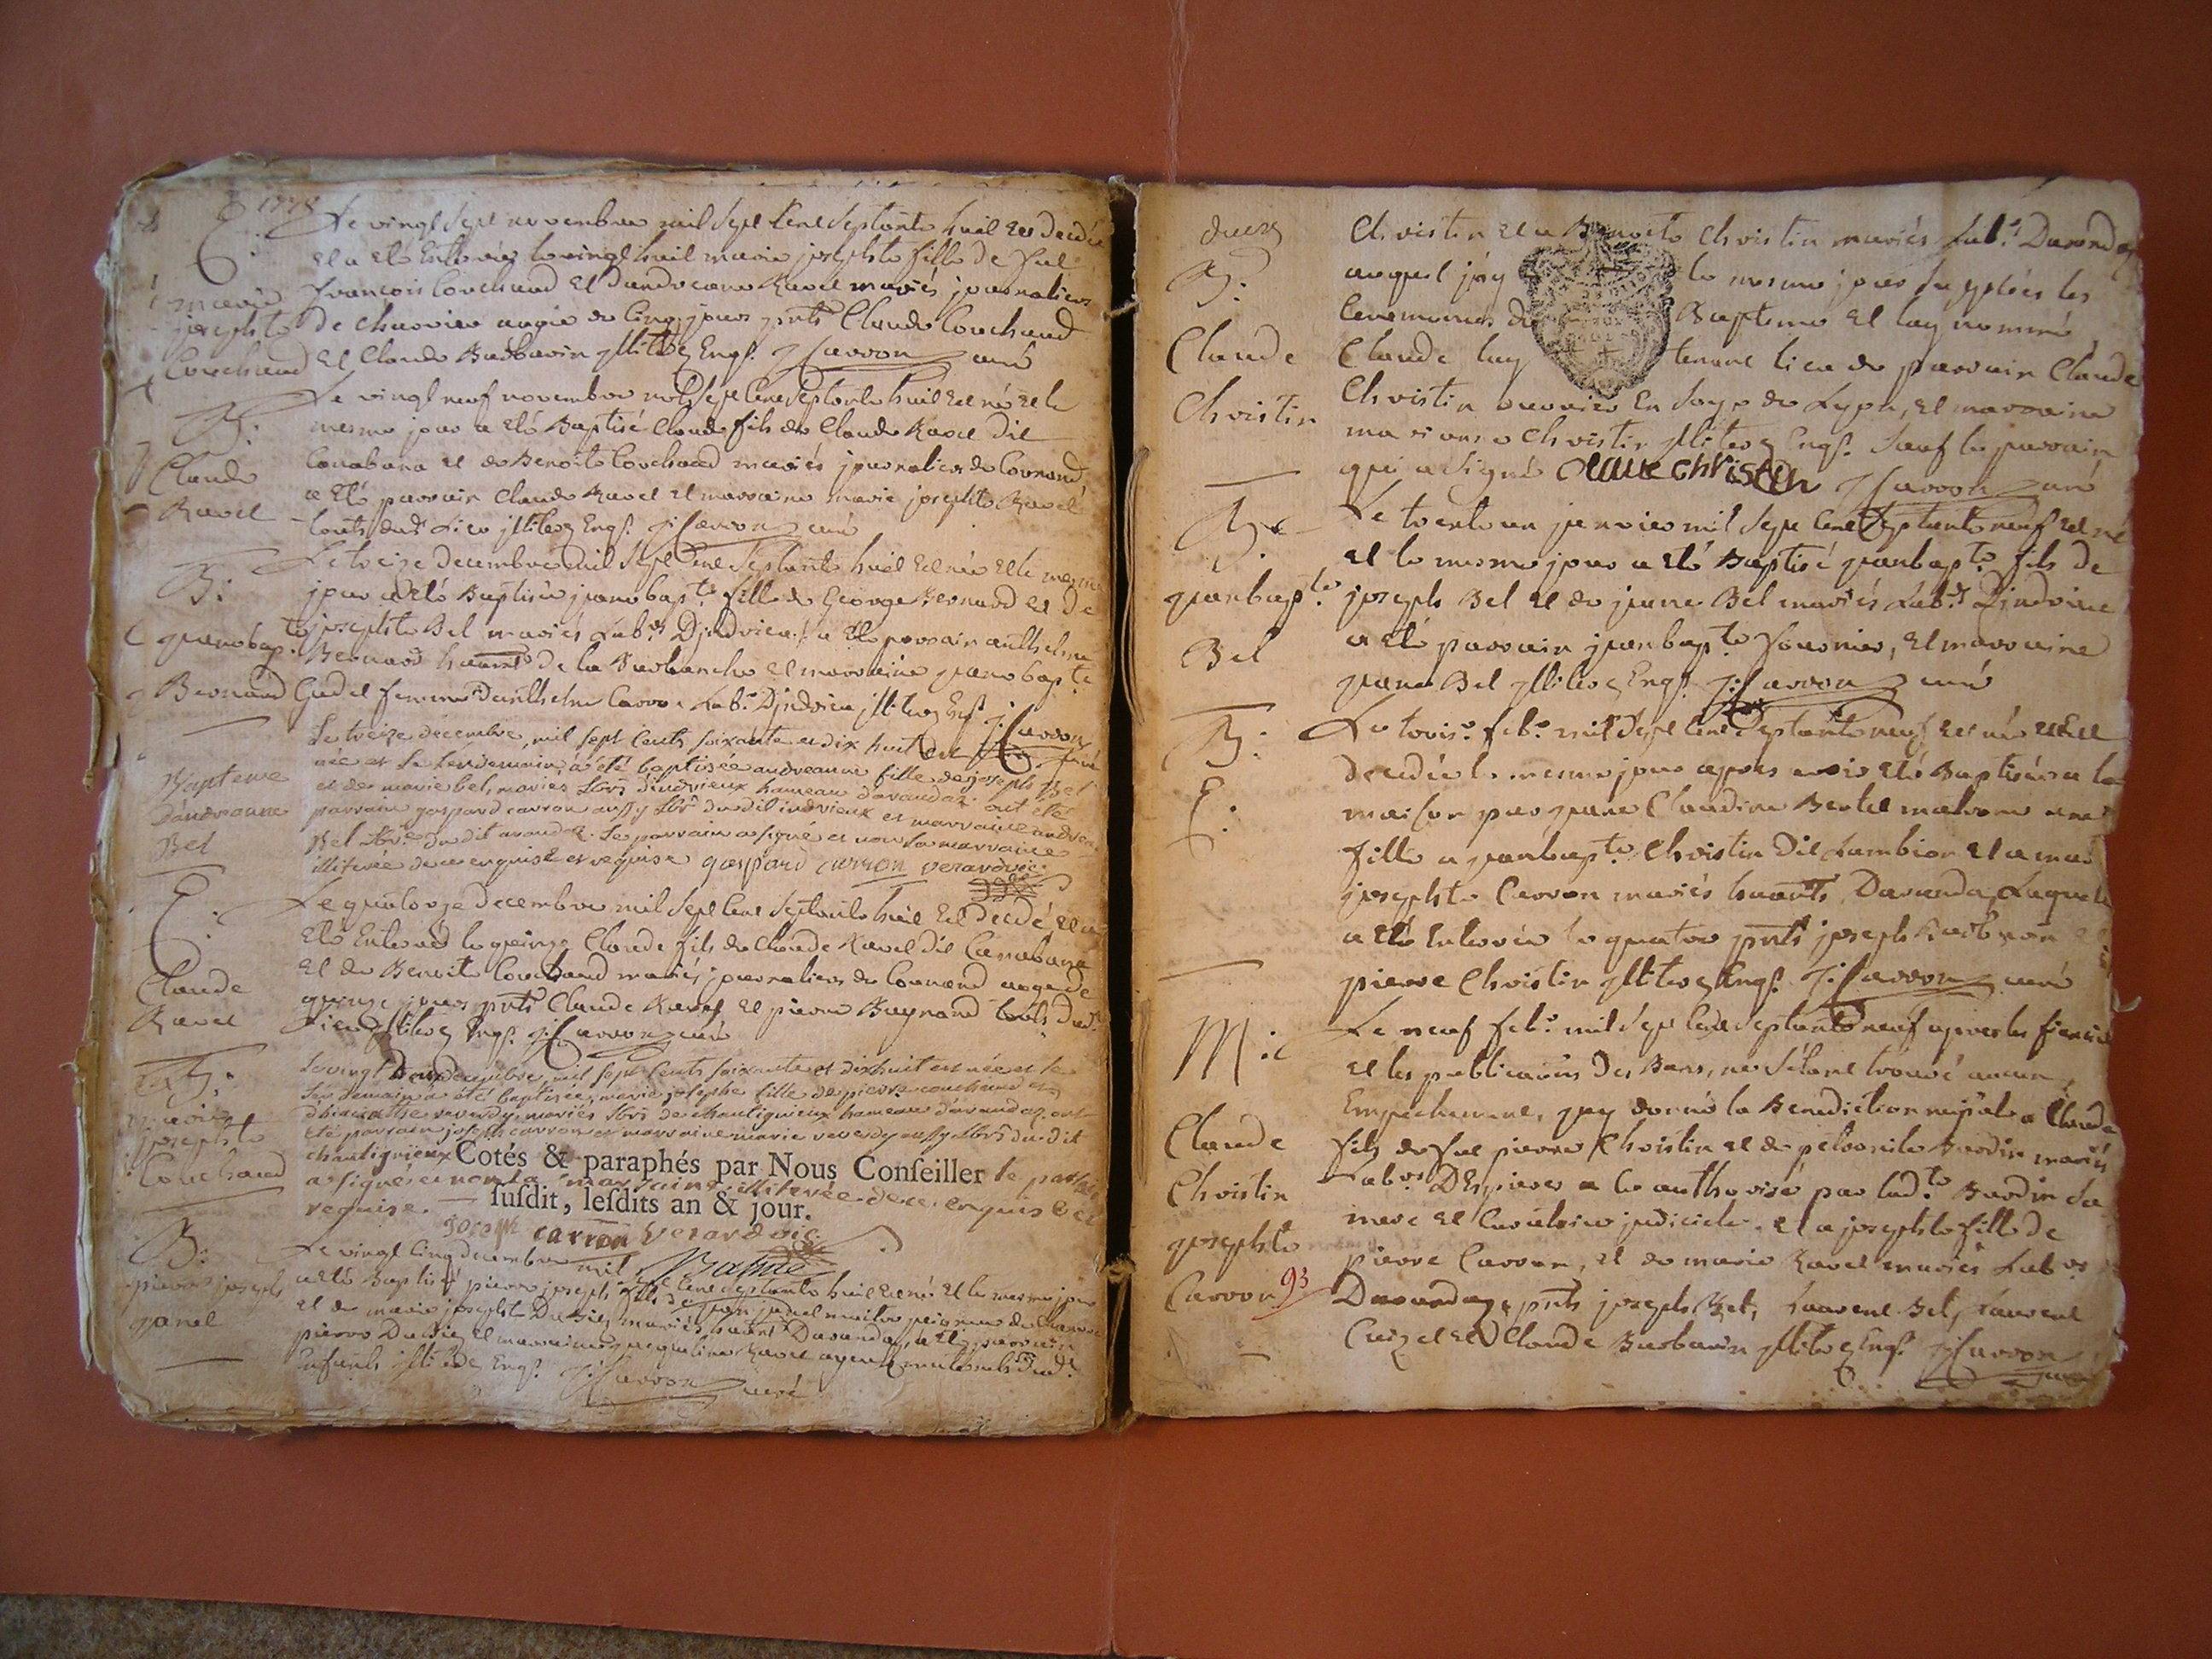 E. 1778 Le vingt sept novembre mil sept cent septante huit est decedée
et a eté enterrée le vingt huit marie josephte fille de feu
françois Couchaud et dandreane Ravel mariés journaliers
marie josephte Couchaud
de agée de cinq jours pnts Claude Couchaud
et Claude Barbarin illiterez Enqs. J: Carron curé
B: Claude Ravel
Le vingt neuf novembre mil sept cent septante huit est né et le
mesme jour a eté Baptisé Claude fils de Claude Ravel dit
Canabana et de Benoite Couchaud mariés journaliers de
a eté parrain Claude Ravel et marraine marie josephte Ravel
touts dud. Lieu illiterez Enqs. J: Carron curé
B: jeanebapte Bernard
Le treize decembre mil sept cent septante huit est née et le mesme
jour a eté Baptisée jeanebapte fille de George Bernard et de
josephte Bel mariés Labrs Djndvieu a eté parrain anthelme
Bernard de la et marraine janebapte
femme danthelme Carro Labr. Djndvieu illiterez Enqs J: Carron curé
Bapteme Dandreanne Bel
Le treize décembre, mil sept cents soixante et dix huit est
née et le lendemain a été baptisée andreanne fille de joseph Bel
et de marie bel, mariés lbrs d'indrieux hameau d'arandaz ont été
parrain gaspard carron aussy lbr dudit indrieux et marraine andreane
Bel lbre dudit arandaz. Le parrain a signé et non la marraine
illiterée de ce enquise et requise gaspard carron verard vic.
E: Claude Ravel
Le quatorze decembre mil sept cent septante huit est decedé et a
eté enterré le quinze Claude fils de Claude Ravel dit Canabana
et de Benoite Couchaud mariés journaliers de agé de
quinze jours pnts Claude Ravel et pierre touts dud.
Lieu illiterez Enqs. J: Carron curé
B: marie josephte Couchaud
Le vingt decembre mil sept cents soixante et dix huit est née et le
lendemain a été baptisée, marie josephe fille de pierre couchaud et
d'hiacinthe reverdy, mariés lbrs de chantignieux hameau d'arandaz. ont
été parrain joseph carron et marraine marie reverdy aussy lbrs du dit
chantignieux Cotés & paraphés par Nous Conſeiller le parrain
a signé et non la marraine illiterée de ce enquise et
ſuſdit, leſdits an & jour.
requise. joseph carron verard vic.
B: pierre joseph janel
Le vingt cinq decembre mil sept cent septante huit est né et le mesme jour
a eté Baptisé pierre joseph fils de jean janel maitre peigneur de chanvre
et de marie josephte Dubiez mariés Daranda, a eté parrain
pierre Dubiez et marraine jaqueline Ravel
illiterez Enqs. J: Carron curé
duez
Christin et a Benoite Christin mariés Labrs Darandaz
B:
auquel jay le mesme jour supplées les
ceremonies du Baptesme et lay nommé
Claude Christin
Claude luy tenant lieu de parrain Claude
Christin ouvrier En soye de Lyon, et marraine
marianne Christin illiterez Enqs. sauf le parrain
qui a signé Claude christin J: Carron curé
B: jeanbapte Bel
Le trente un janvier mil sept cent septante neuf est né
et le mesme jour a eté Baptisé jeanbapte fils de
joseph Bel et de jeane Bel mariés Labrs Djndvieu
a eté parrain jeanbapte fournier, et marraine
jeane Bel illiterez Enqs J: Carron curé
B: E:
Le trois feb. mil sept cent septante neuf est née et est
decedée le mesme jour apres avoir eté Baptisée a la
maison par jeane Claudine Bertet matrone une
fille a jeanbapte Christin dit Lambion et a marie
josephte Carron mariés Daranda, Laquelle
a eté enterrée le quatre pnts joseph et
pierre Christin illiterez Enqs. J: Carron curé
M: Claude Christin josephte Carron 93
Le neuf feb. mil sept cent septante neuf apres les fiancailles
et les publications des Bans, ne s'étant trouvé aucun
Empechement, jay donné la Benediction nuptiale a Claude
fils de feu pierre Christin et de petronile Bardin mariés
Labrs D' a ce authorisé par lad.te Bardin sa
mere et Curatrice judiciele, et a josephte fille de
pierre Carron, et de marie Ravel mariés Labrs
Darandaz, pnts joseph Bel, Laurent Bel, Laurent
et Claude Barbarin illiterez Enqs J: Carron curé